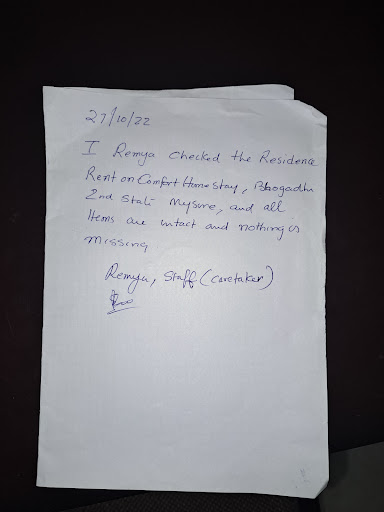 27/10/22
I Remya checked the Residence
Rent on Comfort Home Stay, Bhogadhi
2nd State Mysure, and all
Items are intact and nothing is
missing
Remya, Staff (caretaker)